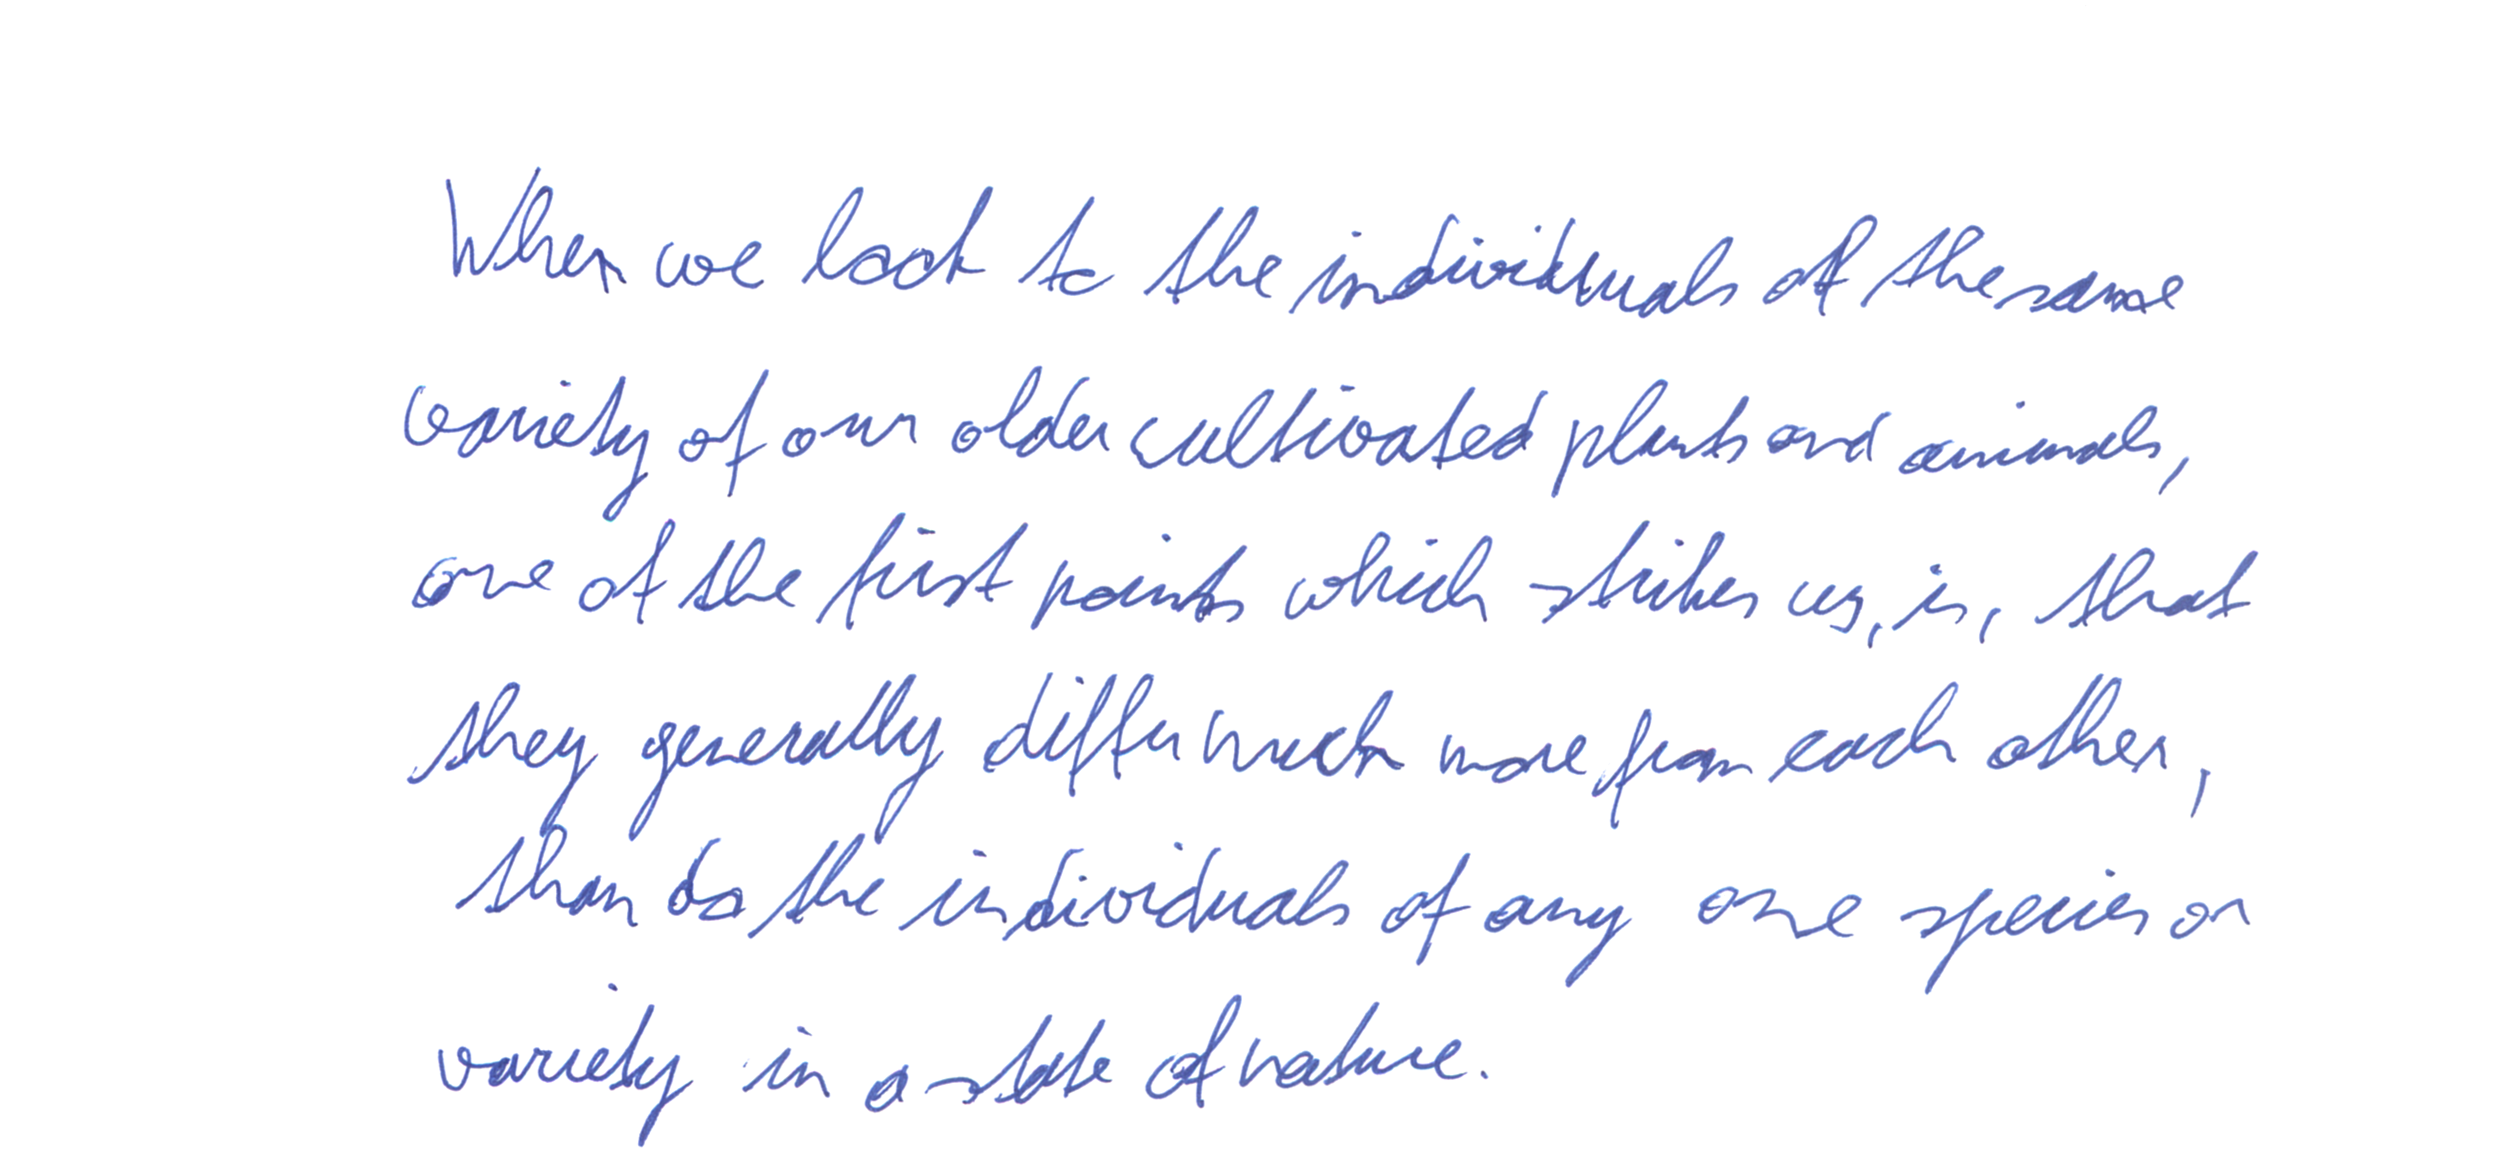 When we look to the individuals of the same
variety of our older cultivated plants and animals,
one of the first points which strikes us, is, that
they generally differ much more from each other,
than do the individuals of any one species or
variety in a state of nature.